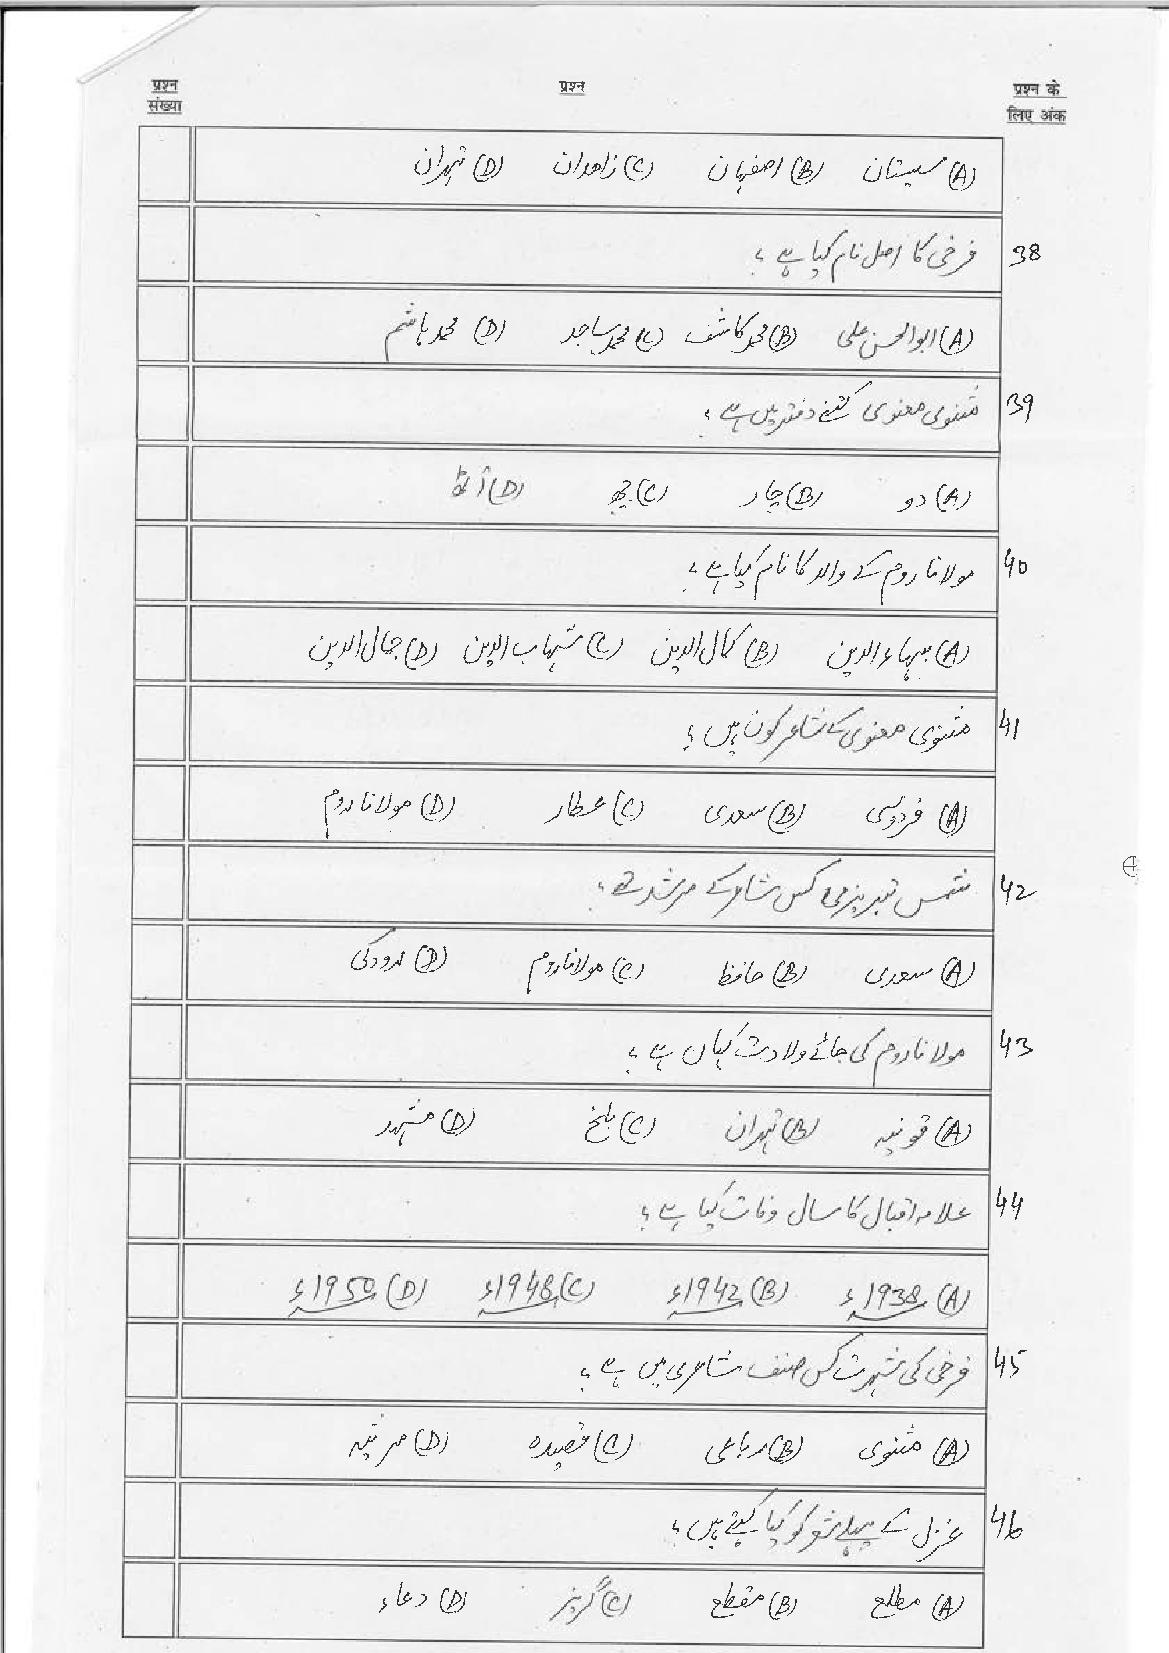 प्रश्न संख्या
प्रश्न
प्रश्न के लिए अंक
(A) سیستان (B) اصفہان (C) زاہدان (D) تہران
38 فرخی کا اصل نام کیا ہے؟
(A) ابوالحسن علی (B) محمد کاشف (C) محمد ساجد (D) محمد ہاشم
39 مثنوی معنوی کتنے دفتر میں ہے؟
(A) دو (B) چار (C) چھ (D) آٹھ
40 مولانا روم کے والد کا نام کیا ہے؟
(A) بہاء الدین (B) کمال الدین (C) شہاب الدین (D) جمال الدین
41 مثنوی معنوی کے شاعر کون ہیں؟
(A) فردوسی (B) سعدی (C) عطار (D) مولانا روم
42 شمس تبریزی کس شاعر کے مرشد تھے؟
(A) سعدی (B) حافظ (C) مولانا روم (D) رودکی
43 مولانا روم کی جائے ولادت کہاں ہے؟
(A) قونیہ (B) تہران (C) بلخ (D) مشہد
44 علامہ اقبال کا سال وفات کیا ہے؟
(A) 1938ء (B) 1942ء (C) 1948ء (D) 1950ء
45 فرخی کی شہرت کس صنف شاعری میں ہے؟
(A) مثنوی (B) رباعی (C) قصیدہ (D) مرثیہ
46 غزل کے پہلے شعر کو کیا کہتے ہیں؟
(A) مطلع (B) مقطع (C) گریز (D) دعاء